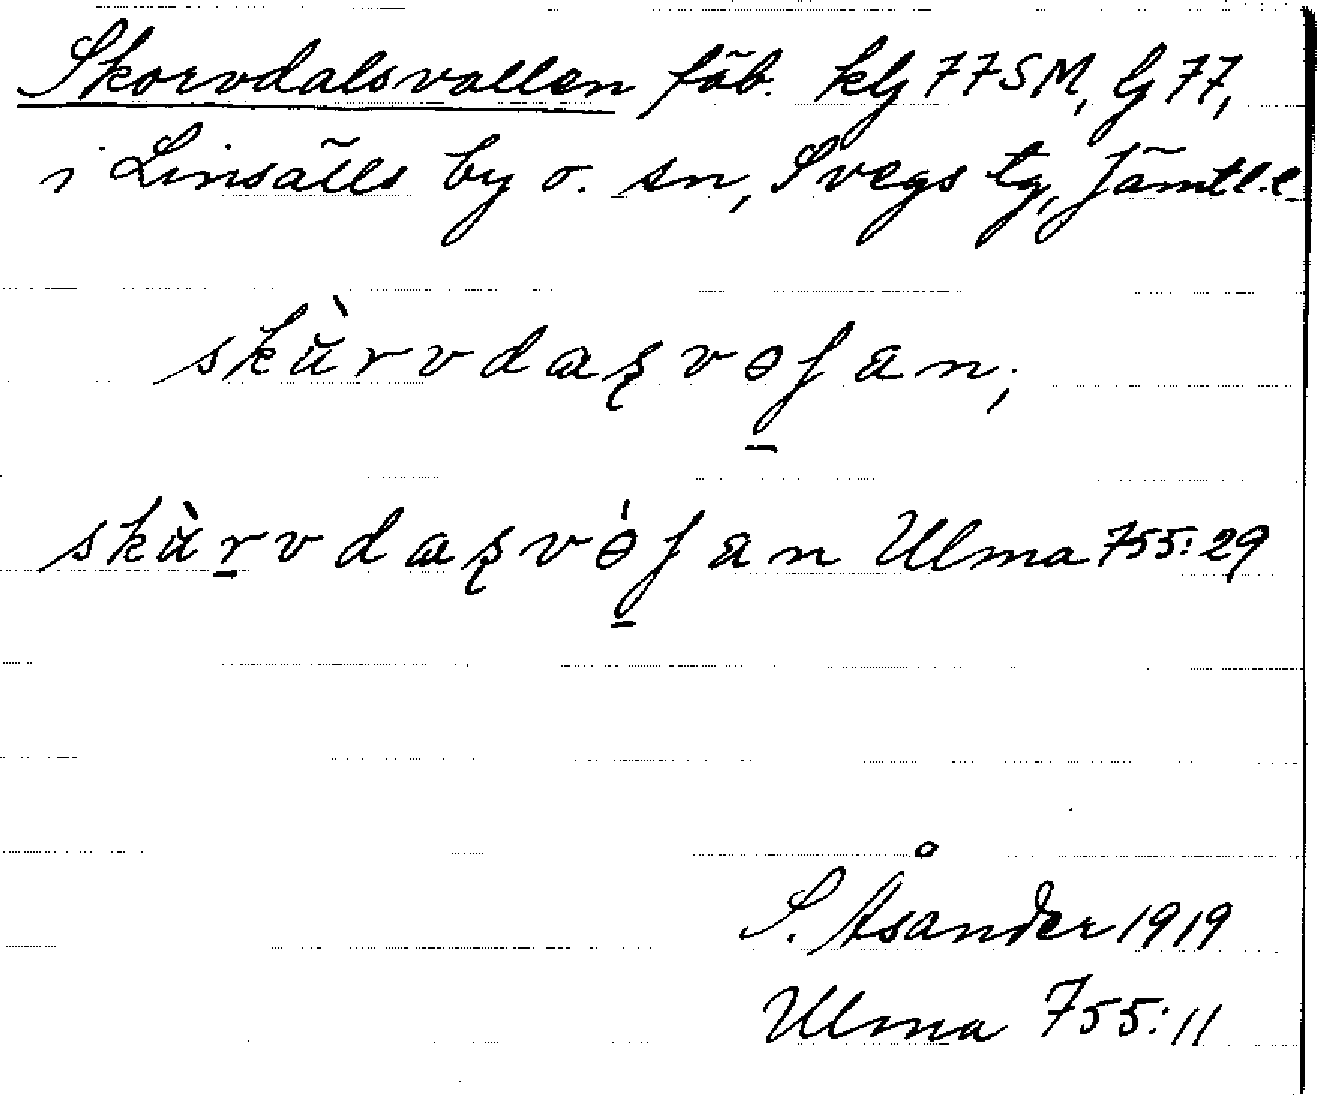 Skorvdalsvallen fäb. klj 77 SM, lj 77,
i Linsälls by o. sn, Svegs tg, Jämtl. l.
skùrvdaʂvɵʃan,
skùrvdaʂvɵ́ʃan Ulma 755:29
S. Åsander 1919
Ulma 755:11